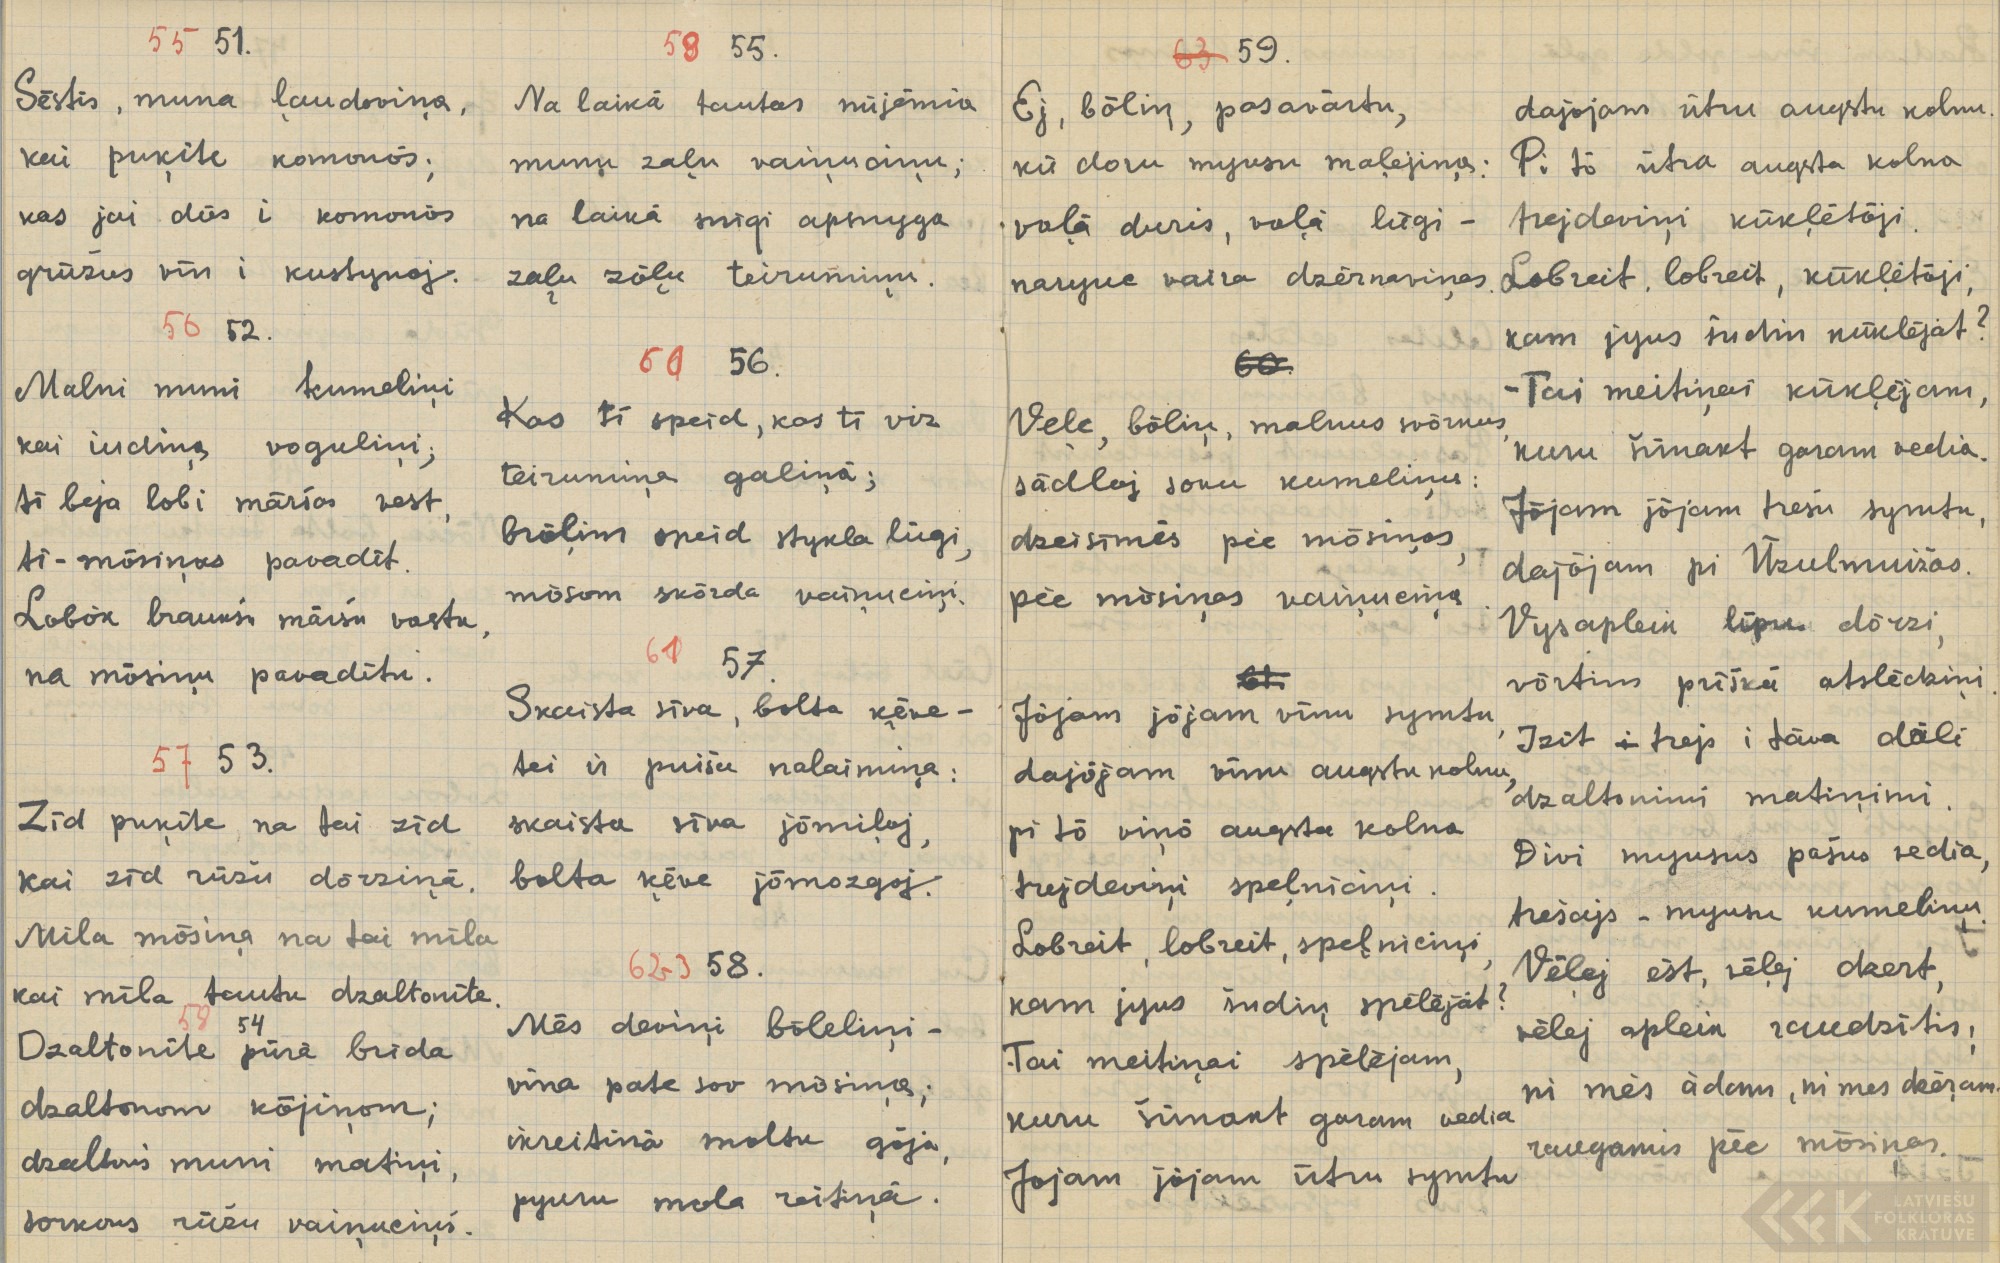 55 51.
Sēstīs, muna ļaudoviņa,
kai puķīte komonōs;
kas jai dūs i komonōs
grūžus vīn i kustynoj.
56 52.
Malni muni kumeliņi
kai iudiņa voguliņi;
tī beja lobi māršas vest,
tī - mōsiņas pavadīt.
Lobōk braukšu māršu vastu,
na mōsiņu pavadītu.
57 53.
Zīd puķīte, na tai zīd
kai zīd rūžu dōrziņā.
Mīla mōsiņa na tai mīla
kai mīla tautu dzaltonīte.
58 54
Dzaltonīte pūrā brida
dzaltonom kōjiņom;
dzaltoni muni matiņi,
sorkons rūžu vaiņuciņš.
59 55.
Na laikā tautas nūjēmia
munu zaļu vaiņuciņu;
na laikā snīgi apsnyga
zaļu zōļu teirumiņu.
60 56.
Kas tī speid, kas tī viz
teirumiņa galiņā;
brōļim speid stykla lūgi,
mōsom skōrda vaiņuciņi.
61 57.
Skaista sīva, bolta ķēve -
tei ir puiša nalaimiņa:
skaista sīva jōmiļoj,
bolta ķēve jōmozgoj.
62-3 58.
Mēs deviņi bōleliņi -
vīna pate sov mōsiņa;
ikreitiņā moltu gōja,
pyuru mola reitiņā.
63 59.
Ej, bōliņ, pasavārtu,
kū doru myusu maļējiņa:
vaļā duris, vaļā lūgi -
naryuc vaira dzērnaviņas.
60.
Veļc, bōliņ, malnus svōrkus,
sādloj sovu kumeliņu:
dzeisimēs pēc mōsiņas,
pēc mōsiņas vaiņuciņa.
61.
Jōjam jōjam vīnu symtu,
dajōjam vīnu augstu kolnu,
pi tō viņō augsta kolna
trejdeviņi speļniciņi.
Lobreit, lobreit, speļniciņi,
kam jyus šudiņ spēlējāt?
Tai meitiņai spēlējam,
kuru šūnakt garam vedia
Jojam jōjam ūtru symtu
dajojam ūtru augstu kolnu.
Pi tō ūtra augsta kolna
trejdeviņi kūkļētōji.
Lobreit, lobreit, kūkļētōji,
kam jyus šudiņ kūklējāt?
- Tai meitiņai kūkļējam,
kuru šūnakt garam vedia.
Jōjam jōjam trešu symtu,
dajōjam pi Ūzulmuižas.
Vysapleik līpu dōrzi,
vōrtim prīškā atslēdziņi.
Izīt trejs i tāva dāli
dzaltonimi matiņimi.
Divi myusus pašus vedia,
trešajs - myusu kumeliņu.
Vēlej ēst, vēlej dzert,
vēlej apleik raudzītis;
ni mēs ādam, ni mes dzēram
raugamis pēc mōsiņas.
LATVIEŠU
FOLKLORAS
KRĀTUVE